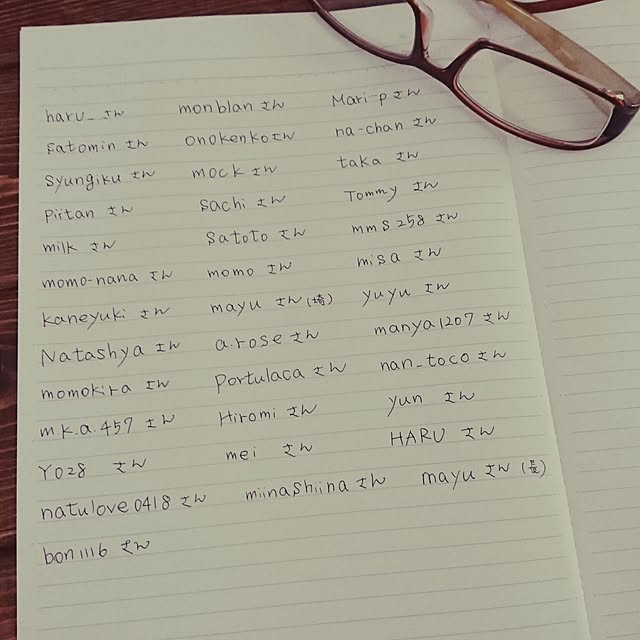 haru_ さん monblan さん Mari-p さん
Satomin さん onokenko さん na-chan さん
syungiku さん mock さん taka さん
Piitan さん sachi さん Tommy さん
milk さん satoto さん mms258 さん
momo-nana さん momo さん misa さん
kaneyuki さん mayu さん(埼) yuyu さん
Natashya さん a.rose さん manya1207 さん
momokira さん portulaca さん nan_toco さん
m.k.a.457 さん Hiromi さん yun さん
Yo28 さん mei さん HARU さん
natulove0418 さん miinashiina さん mayu さん(長)
bon1116 さん